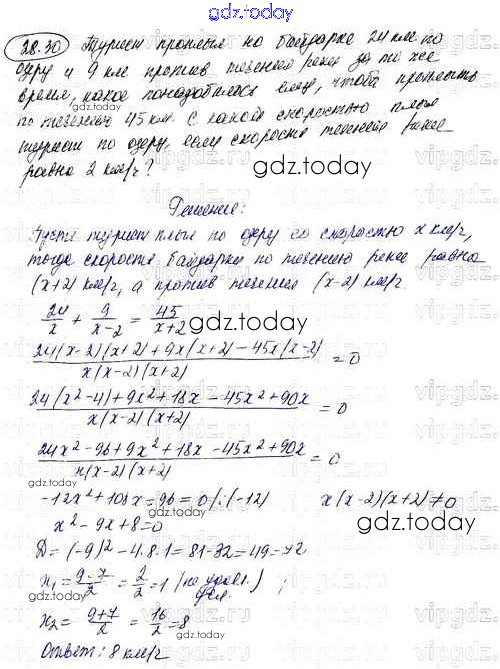 gdz.today
28.30 Турист проплыл на байдарке 24 км по
озеру и 9 км против течения реки за то же
время, какое понадобилось ему, чтобы проплыть
по течению 45 км. С какой скоростью плыл
турист по озеру, если скорость течения реки
равна 2 км/ч?
gdz.today
gdz.today
Решение:
Пусть турист плыл по озеру со скоростью x км/ч,
тогда скорость байдарки по течению реки равна
(x+2) км/ч, а против течения (x-2) км/ч.
24/x + 9/(x-2) = 45/(x+2)
gdz.today
24(x-2)(x+2)+9x(x+2)-45x(x-2) / x(x-2)(x+2) = 0
24(x²-4)+9x²+18x-45x²+90x / x(x-2)(x+2) = 0
24x²-96+9x²+18x-45x²+90x / x(x-2)(x+2) = 0
-12x²+108x-96=0 /:(-12) x(x-2)(x+2)≠0
x²-9x+8=0
gdz.today
D=(-9)²-4·8·1=81-32=49=7²
x₁=(9-7)/2=2/2=1 (не удовл.)
gdz.today
x₂=(9+7)/2=16/2=8
gdz.today
Ответ: 8 км/ч